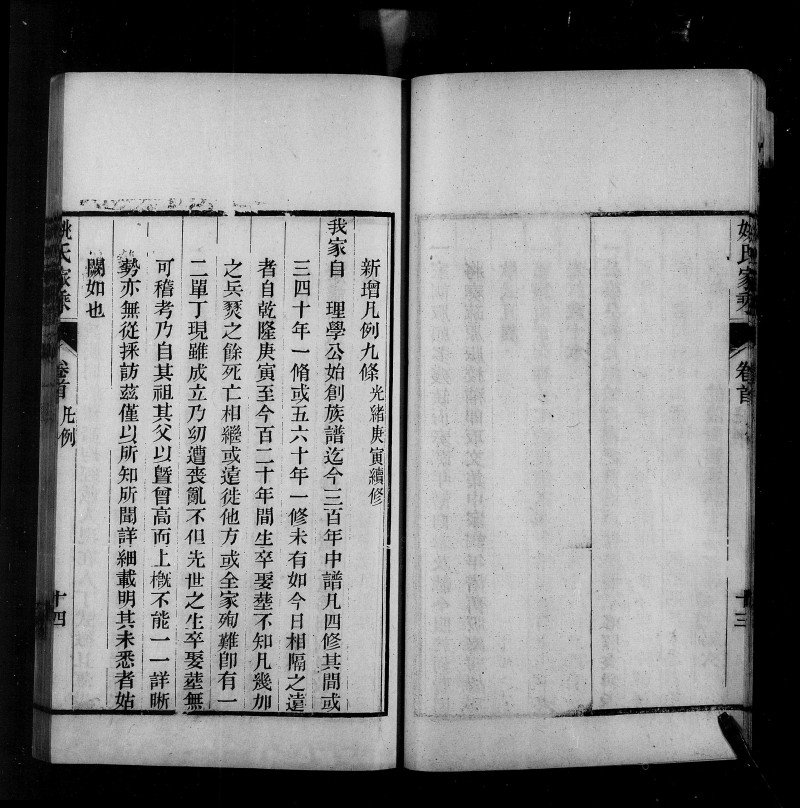 姚氏家乘
卷首
十三
新增凡例九條光緒庚寅續修
我家自 理學公始創族譜迄今三百年中譜凡四修其間或
三四十年一脩或五六十年一修未有如今日相隔之遠
者自乾隆庚寅至今百二十年間生卒娶塟不知凡幾加
之兵燹之餘死亡相繼或遠徙他方或全家殉難卽有一
二單丁現雖成立乃幼遭喪亂不但先世之生卒娶塟無
可稽考乃自其祖其父以曁曾高而上槪不能一一詳晰
勢亦無從採訪茲僅以所知所聞詳細載明其未悉者姑
闕如也
姚氏家乘
卷首 凡例
十四